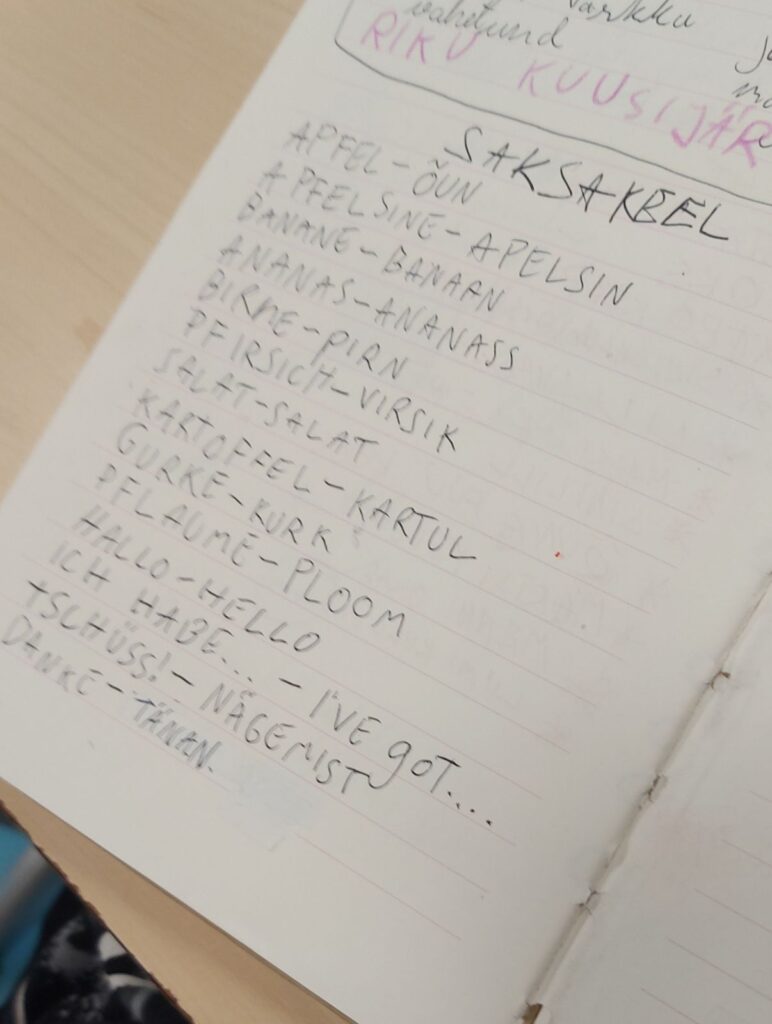 vahetund
RIKU KUUSIJÄR
SAKSAKEEL
APFEL - ÕUN
APFELSINE - APELSIN
BANANE - BANAAN
ANANAS - ANANASS
BIRNE - PIRN
PFIRSICH - VIRSIK
SALAT - SALAT
KARTOFFEL - KARTUL
GURKE - KURK
PFLAUME - PLOOM
HALLO - HELLO
ICH HABE... - I'VE GOT....
TSCHÜSS! - NÄGEMIST
DANKE - TÄNAN.